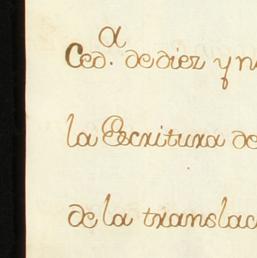 Ced.ª de diez y n
la Escritura de
de la translac